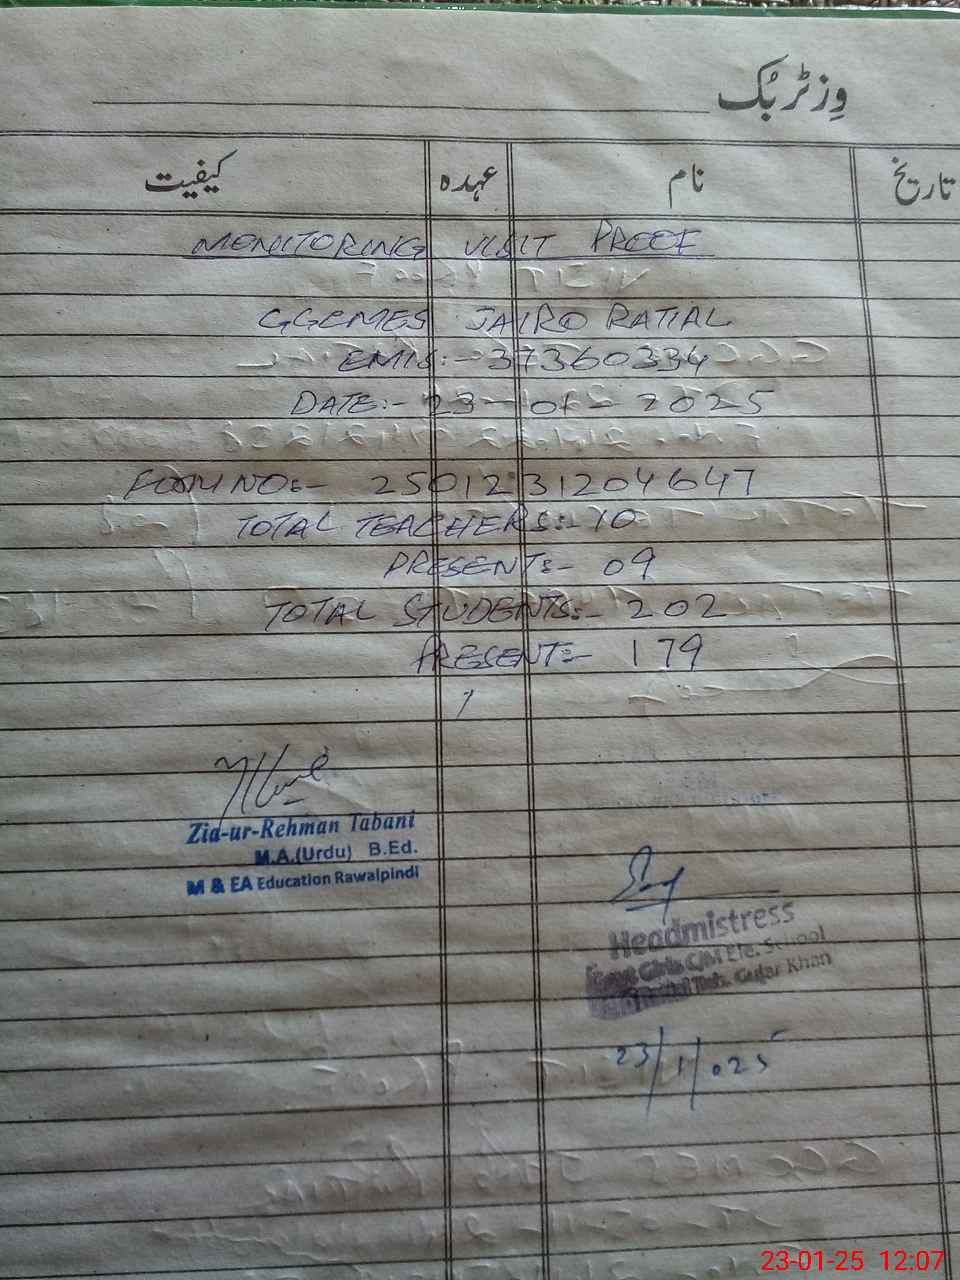 وِزٹر بُک
تاریخ نام عہدہ کیفیت
MONITORING VISIT PROOF
GGCMES JAIRO RATIAL
EMIS:- 37360334
DATE:- 23-01-2025
FORM NO:- 2501231204647
TOTAL TEACHERS:- 10
PRESENT:- 09
TOTAL STUDENTS:- 202
PRESENT:- 179
Zia-ur-Rehman Tabani
M.A.(Urdu) B.Ed.
M & EA Education Rawalpindi
Headmistress
Govt Girls C/M Ele. School
Ratial Teh. Gujar Khan
23/1/025
23-01-25 12:07